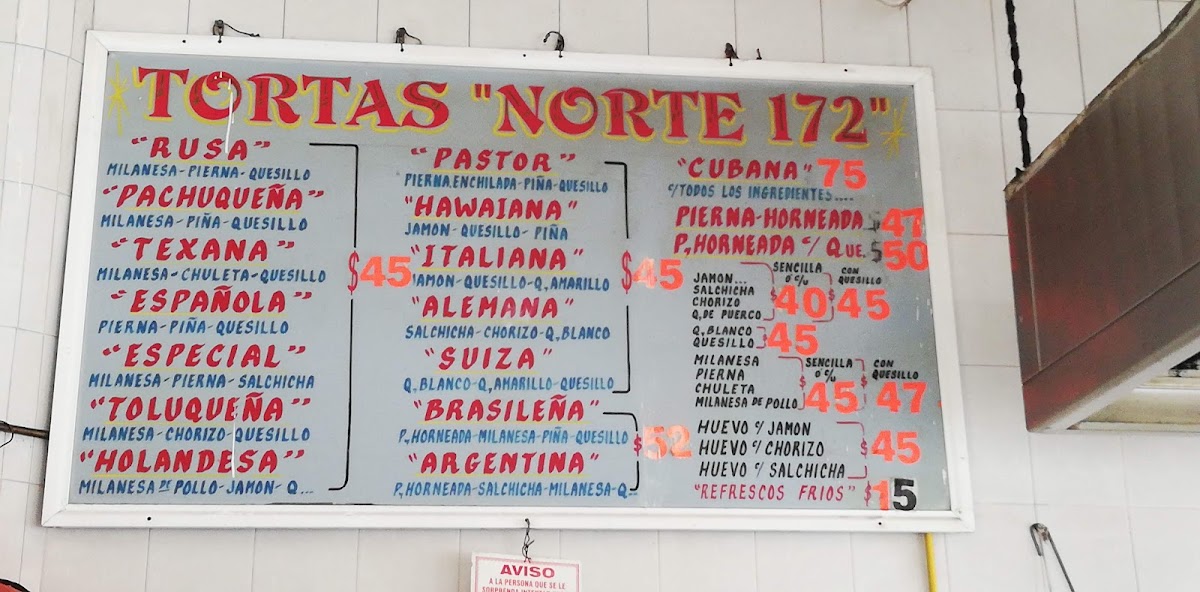 TORTAS "NORTE 172"
"RUSA"
MILANESA-PIERNA-QUESILLO
"PACHUQUEÑA"
MILANESA-PIÑA-QUESILLO
"TEXANA"
MILANESA-CHULETA-QUESILLO
"ESPAÑOLA"
PIERNA-PIÑA-QUESILLO
"ESPECIAL"
MILANESA-PIERNA-SALCHICHA
"TOLUQUEÑA"
MILANESA-CHORIZO-QUESILLO
"HOLANDESA"
MILANESA DE POLLO-JAMON-Q...
$45
"PASTOR"
PIERNA,ENCHILADA-PIÑA-QUESILLO
"HAWAIANA"
JAMON-QUESILLO-PIÑA
"ITALIANA"
JAMON-QUESILLO-Q,AMARILLO
"ALEMANA"
SALCHICHA-CHORIZO-Q,BLANCO
"SUIZA"
Q,BLANCO-Q,AMARILLO-QUESILLO
$45
"BRASILEÑA"
P,HORNEADA-MILANESA-PIÑA-QUESILLO
"ARGENTINA"
P,HORNEADA-SALCHICHA-MILANESA-Q...
$52
"CUBANA" 75
c/TODOS LOS INGREDIENTES....
PIERNA-HORNEADA $47
P,HORNEADA c/ QUE. $50
SENCILLA ó c/c CON QUESILLO
JAMON...
SALCHICHA
CHORIZO
Q,DE PUERCO
$40 $45
Q,BLANCO
QUESILLO
45
SENCILLA ó c/c CON QUESILLO
MILANESA
PIERNA
CHULETA
MILANESA DE POLLO
45 47
HUEVO c/ JAMON
HUEVO c/ CHORIZO
HUEVO c/ SALCHICHA
$45
"REFRESCOS FRIOS" $15
AVISO
A LA PERSONA QUE SE LE